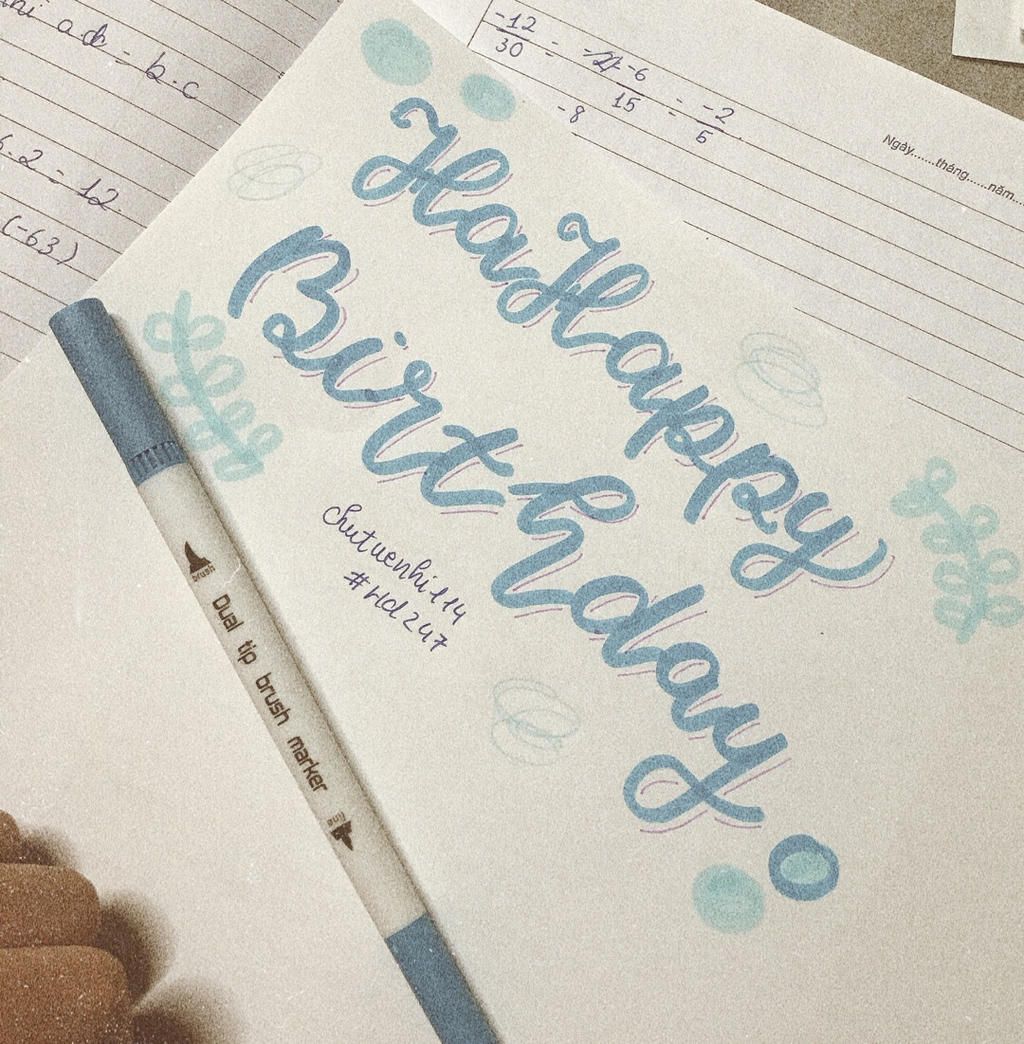 ad = b.c
6.2 = 12
(-63)
-12/30 = -6/15 = -2/5
-8
Ngày.......tháng......năm....
HaHappy
Birthday
chutuenhi114
#Hd247
brush
Dual tip brush marker
fine